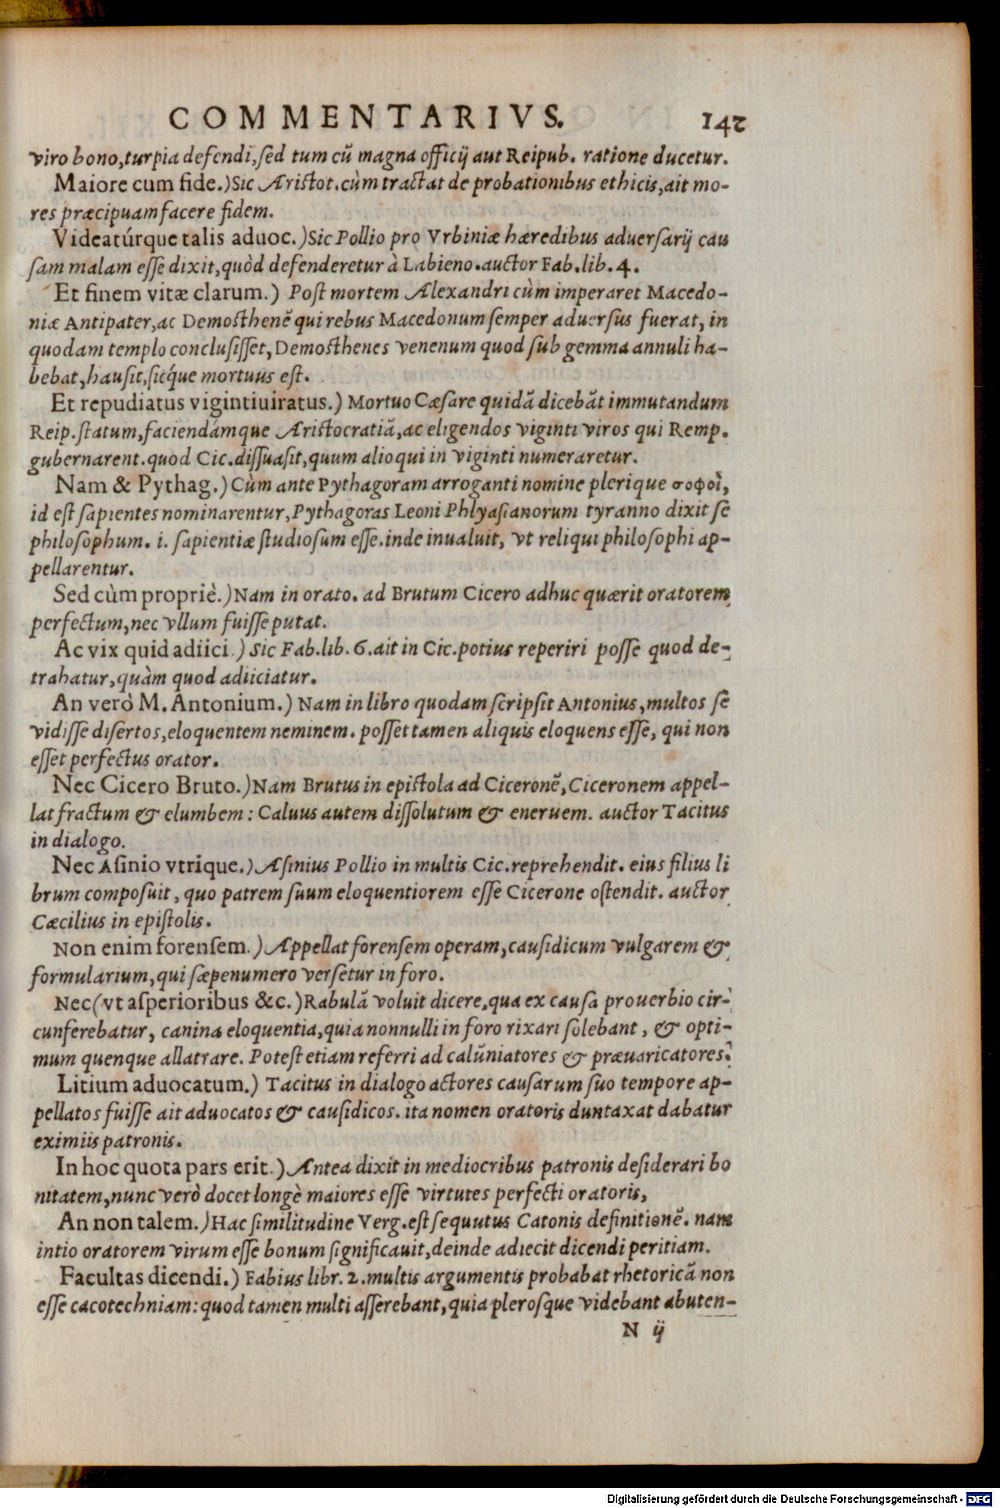 COMMENTARIVS. 142
viro bono,turpia defendi,sed tum cū magna officij aut Reipub. ratione ducetur.
Maiore cum fide.)Sic Aristot.cùm tractat de probationibus ethicis,ait mo-
res præcipuam facere fidem.
Videatúrque talis aduoc.)Sic Pollio pro Vrbiniæ hæredibus aduersarij cau
sam malam esse dixit,quòd defenderetur à Labieno.auctor Fab.lib.4.
Et finem vitæ clarum.) Post mortem Alexandri cùm imperaret Macedo-
niæ Antipater,ac Demosthenē qui rebus Macedonum semper aduersus fuerat, in
quodam templo conclusisset,Demosthenes venenum quod sub gemma annuli ha-
bebat,hausit,sicq́ue mortuus est.
Et repudiatus vigintiuiratus.) Mortuo Cæsare quidā dicebāt immutandum
Reip.statum,faciendámque Aristocratiā,ac eligendos viginti viros qui Remp.
gubernarent.quod Cic.dissuasit,quum alioqui in viginti numeraretur.
Nam & Pythag.)Cùm ante Pythagoram arroganti nomine plerique σοφοὶ,
id est sapientes nominarentur,Pythagoras Leoni Phlyasianorum tyranno dixit se
philosophum. i. sapientiæ studiosum esse.inde inualuit, vt reliqui philosophi ap-
pellarentur.
Sed cùm propriè.)Nam in orato. ad Brutum Cicero adhuc quærit oratorem
perfectum,nec vllum fuisse putat.
Ac vix quid adiici.) Sic Fab.lib. 6.ait in Cic.potius reperiri posse quod de-
trahatur,quàm quod adiiciatur.
An verò M. Antonium.) Nam in libro quodam scripsit Antonius,multos se
vidisse disertos,eloquentem neminem. posset tamen aliquis eloquens esse, qui non
esset perfectus orator.
Nec Cicero Bruto.)Nam Brutus in epistola ad Ciceronē,Ciceronem appel-
lat fractum & elumbem: Caluus autem dissolutum & eneruem. auctor Tacitus
in dialogo.
Nec Asinio vtrique.) Asinius Pollio in multis Cic.reprehendit. eius filius li
brum composuit, quo patrem suum eloquentiorem esse Cicerone ostendit. auctor
Cæcilius in epistolis.
Non enim forensem.) Appellat forensem operam,causidicum vulgarem &
formularium,qui sæpenumero versetur in foro.
Nec(vt asperioribus &c.)Rabulā voluit dicere,qua ex causa prouerbio cir-
cunferebatur, canina eloquentia,quia nonnulli in foro rixari solebant, & opti-
mum quenque allatrare. Potest etiam referri ad calūniatores & præuaricatores.
Litium aduocatum.) Tacitus in dialogo actores causarum suo tempore ap-
pellatos fuisse ait aduocatos & causidicos. ita nomen oratoris duntaxat dabatur
eximiis patronis.
In hoc quota pars erit.) Antea dixit in mediocribus patronis desiderari bo
nitatem,nunc verò docet longè maiores esse virtutes perfecti oratoris,
An non talem.)Hac similitudine Verg.est sequutus Catonis definitionē. nam
intio oratorem virum esse bonum significauit,deinde adiecit dicendi peritiam.
Facultas dicendi.) Fabius libr. 2.multis argumentis probabat rhetoricā non
esse cacotechniam:quod tamen multi asserebant,quia plerosque videbant abuten-
N ij
Digitalisierung gefördert durch die Deutsche Forschungsgemeinschaft - DFG